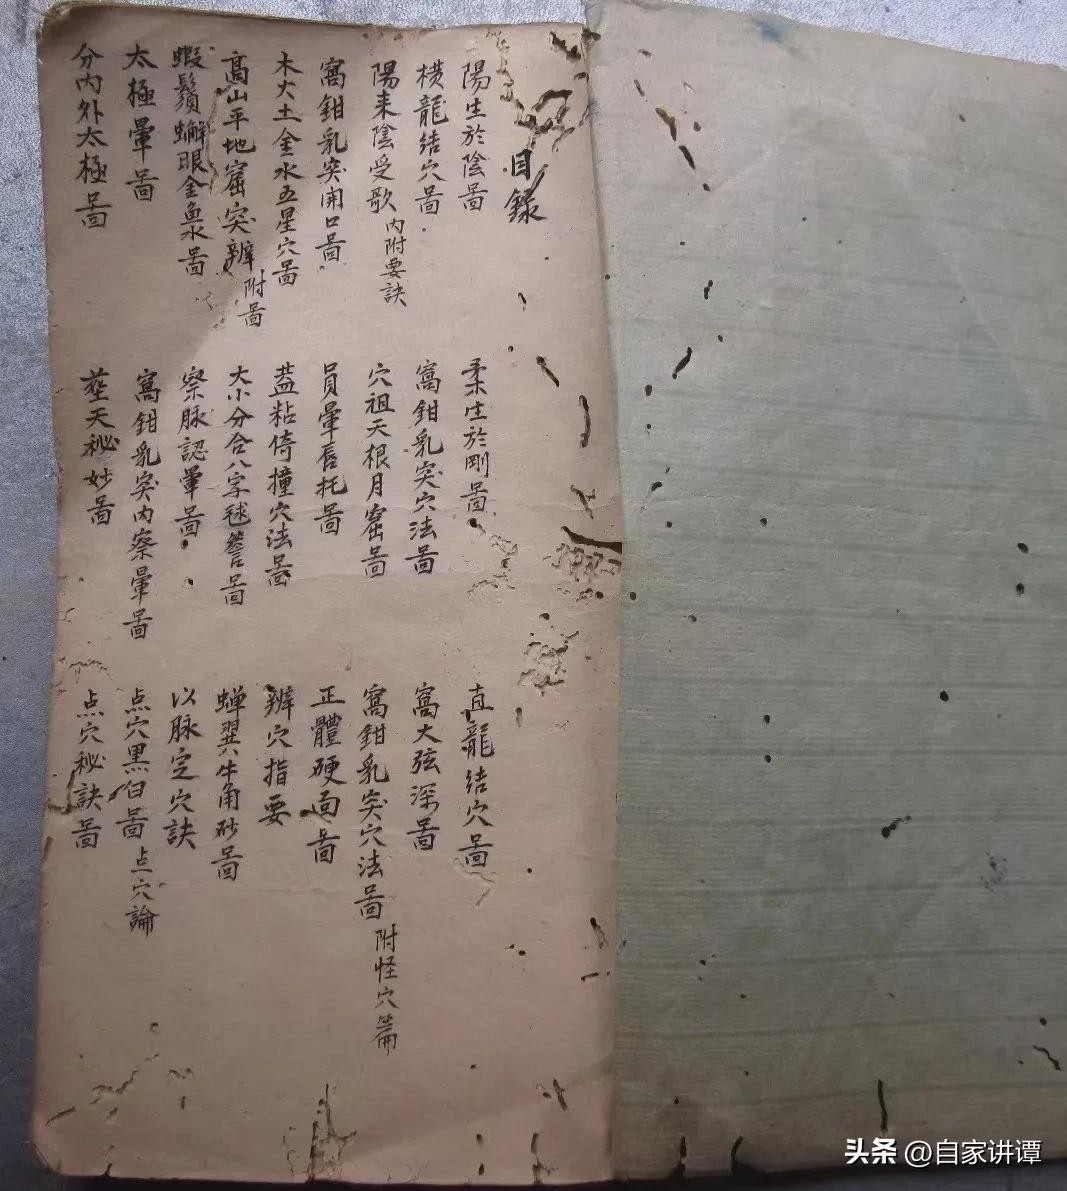 目錄
陽生於陰啚 柔生於剛啚 直龍結穴啚
橫龍結穴啚 窩鉗乳突穴法啚 窩大弦深啚
陽来陰受歌 內附要訣 穴祖天根月窟啚 窩鉗乳突穴法啚 附怪穴篇
窩鉗乳突開口啚 員暈唇托啚 正體硬面啚
木火土金水五星穴啚 蓋粘倚撞穴法啚 辨穴指要
高山平地窟突辨 附啚 大小分合八字毬簷啚 蟬翼牛角砂啚
蝦鬚蠏眼金魚水啚 察脉認暈啚 以脉定穴訣
太極暈啚 窩鉗乳突內察暈啚 点穴黑白啚 点穴論
分內外太極啚 塟天秘妙啚 点穴秘訣啚
头条 @自家讲谭